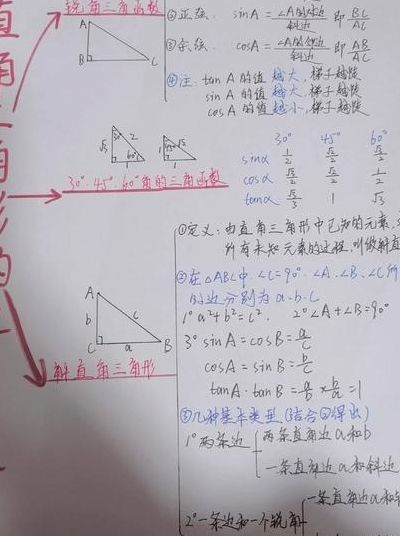 直角三角形的
锐角三角函数
A
B
C
②正弦: sinA = ∠A的对边/斜边 即 BC/AC
③余弦: cosA = ∠A的邻边/斜边 即 AB/AC
④注: tan A 的值越大, 梯子越陡
sin A 的值越大, 梯子越陡
cos A 的值越小, 梯子越陡
30°·45°·60°角的三角函数
√3 30° 2 60° 1
1 45° √2 1
30° 45° 60°
sinα 1/2 √2/2 √3/2
cosα √3/2 √2/2 1/2
tanα √3/3 1 √3
①定义: 由直角三角形中已知的元素,
所有未知元素的过程, 叫做解直
②在△ABC中, ∠C=90°·∠A、∠B、∠C所
的边分别为 a·b·c
1° a²+b²=c². 2° ∠A+∠B=90°
3° sinA = cosB = a/c
cosA = sinB = b/c
tanA · tanB = a/b × b/a = 1
A
b
c
C
a
B
解直角三角形
③几种基本类型 (结合②得出)
1° 两条边
两条直角边 a 和 b
一条直角边 a 和斜边
2° 一条边和一个锐角
一条直角边 a 和